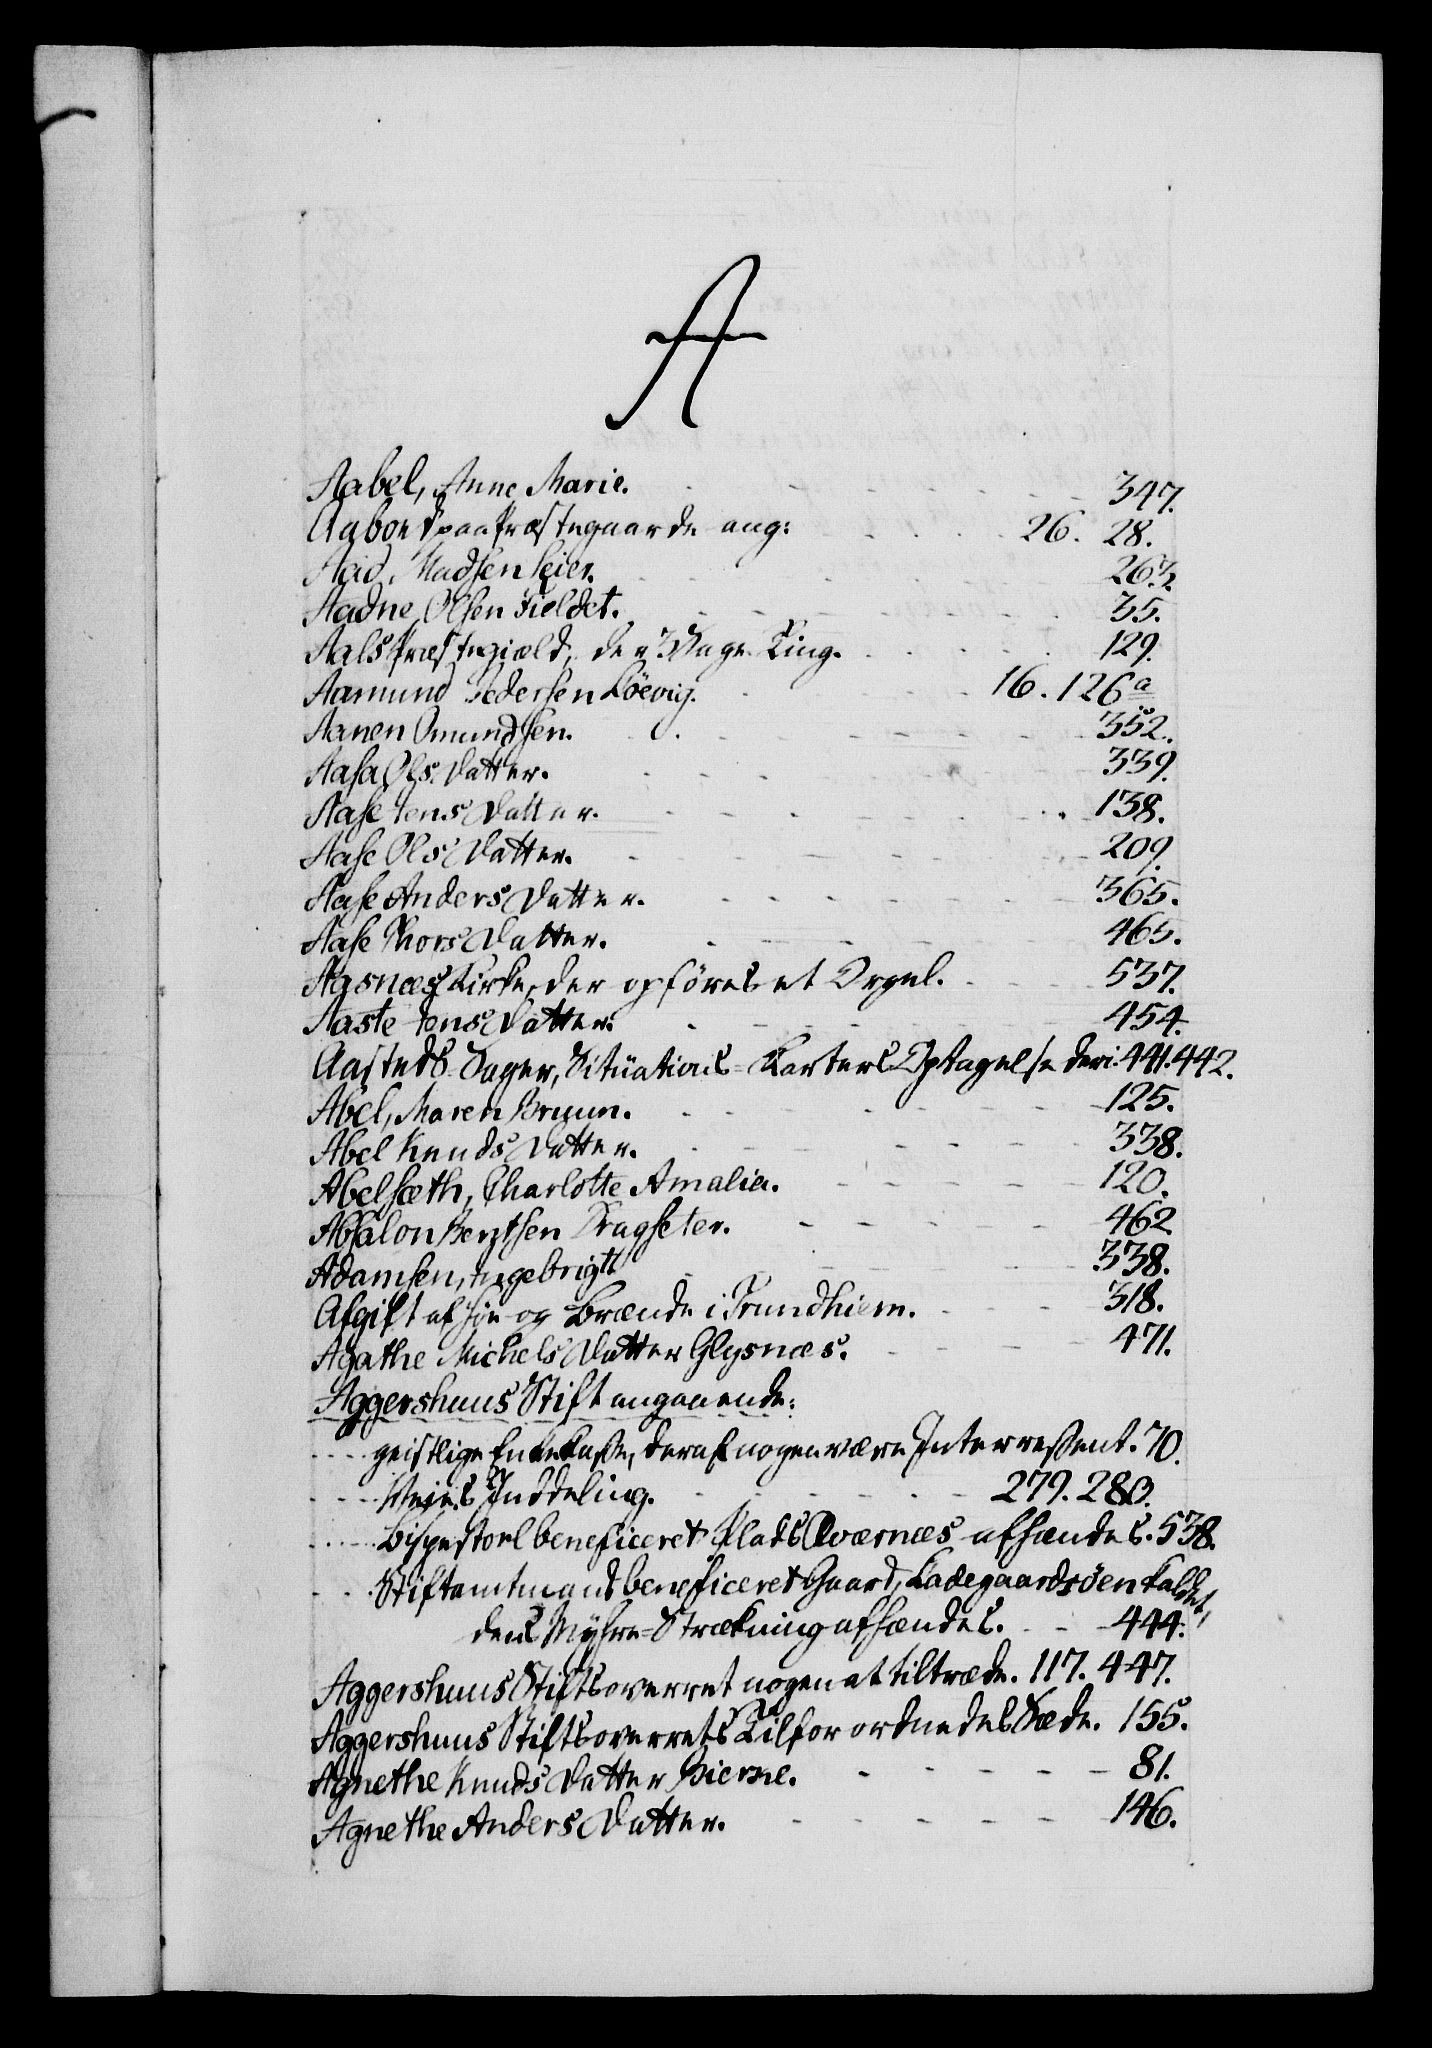 A
Aabel, Anne Marie. 347.
Aaboed paa Præstegaarde ang: 26. 28.
Aad, Madsen 263.
Aadne, Olsen Fieldet. 35.
Aals Præstegiæld, der 3 Dage Ting. 129.
Aamund Pedersen Löevig. 16. 126a
Aanen Omundsen. 352.
Aasa Ols Datter. 339.
Aase Jens Datter. 138.
Aase Ols Datter. 209.
Aase Anders Datter. 365.
Aase Thors Datter. 465.
Aasnæs Kirke, der opföres et Orgel. 537.
Aaste Jens Datter. 454.
Aasteds Sager, Situations-Karters Optagelse deri. 441. 442.
Abel, Maren Bruun. 125.
Abel Knuds Datter. 338.
Abelsæth, Charlotte Amalia. 120.
Absalon Bentsen Kragseter. 462
Adamsen, Ingebrigt 338.
Afgift af Höe og Brænde i Trundhiem. 318.
Agathe Michels Datter Glysnæs. 471.
Aggershuus Stift angaaende:
geistlige Enkekasse, deraf nogen være Interressent. 70.
Veies Inddeling. 279. 280.
Bispestoel beneficeret Plads Qværnæs afhændes. 538.
Stiftamtmand beneficeret Gaard, Ladegaardsöen kaldet,
dens Myhre-Strækning afhændes. 444.
Aggershuus Stiftsoverret nogen at tiltræde. 117. 447.
Aggershuus Stiftsoverrets Tilforordnedes Sæde. 155.
Agnethe Knuds Datter Bierke. 81.
Agnethe Anders Datter. 146.